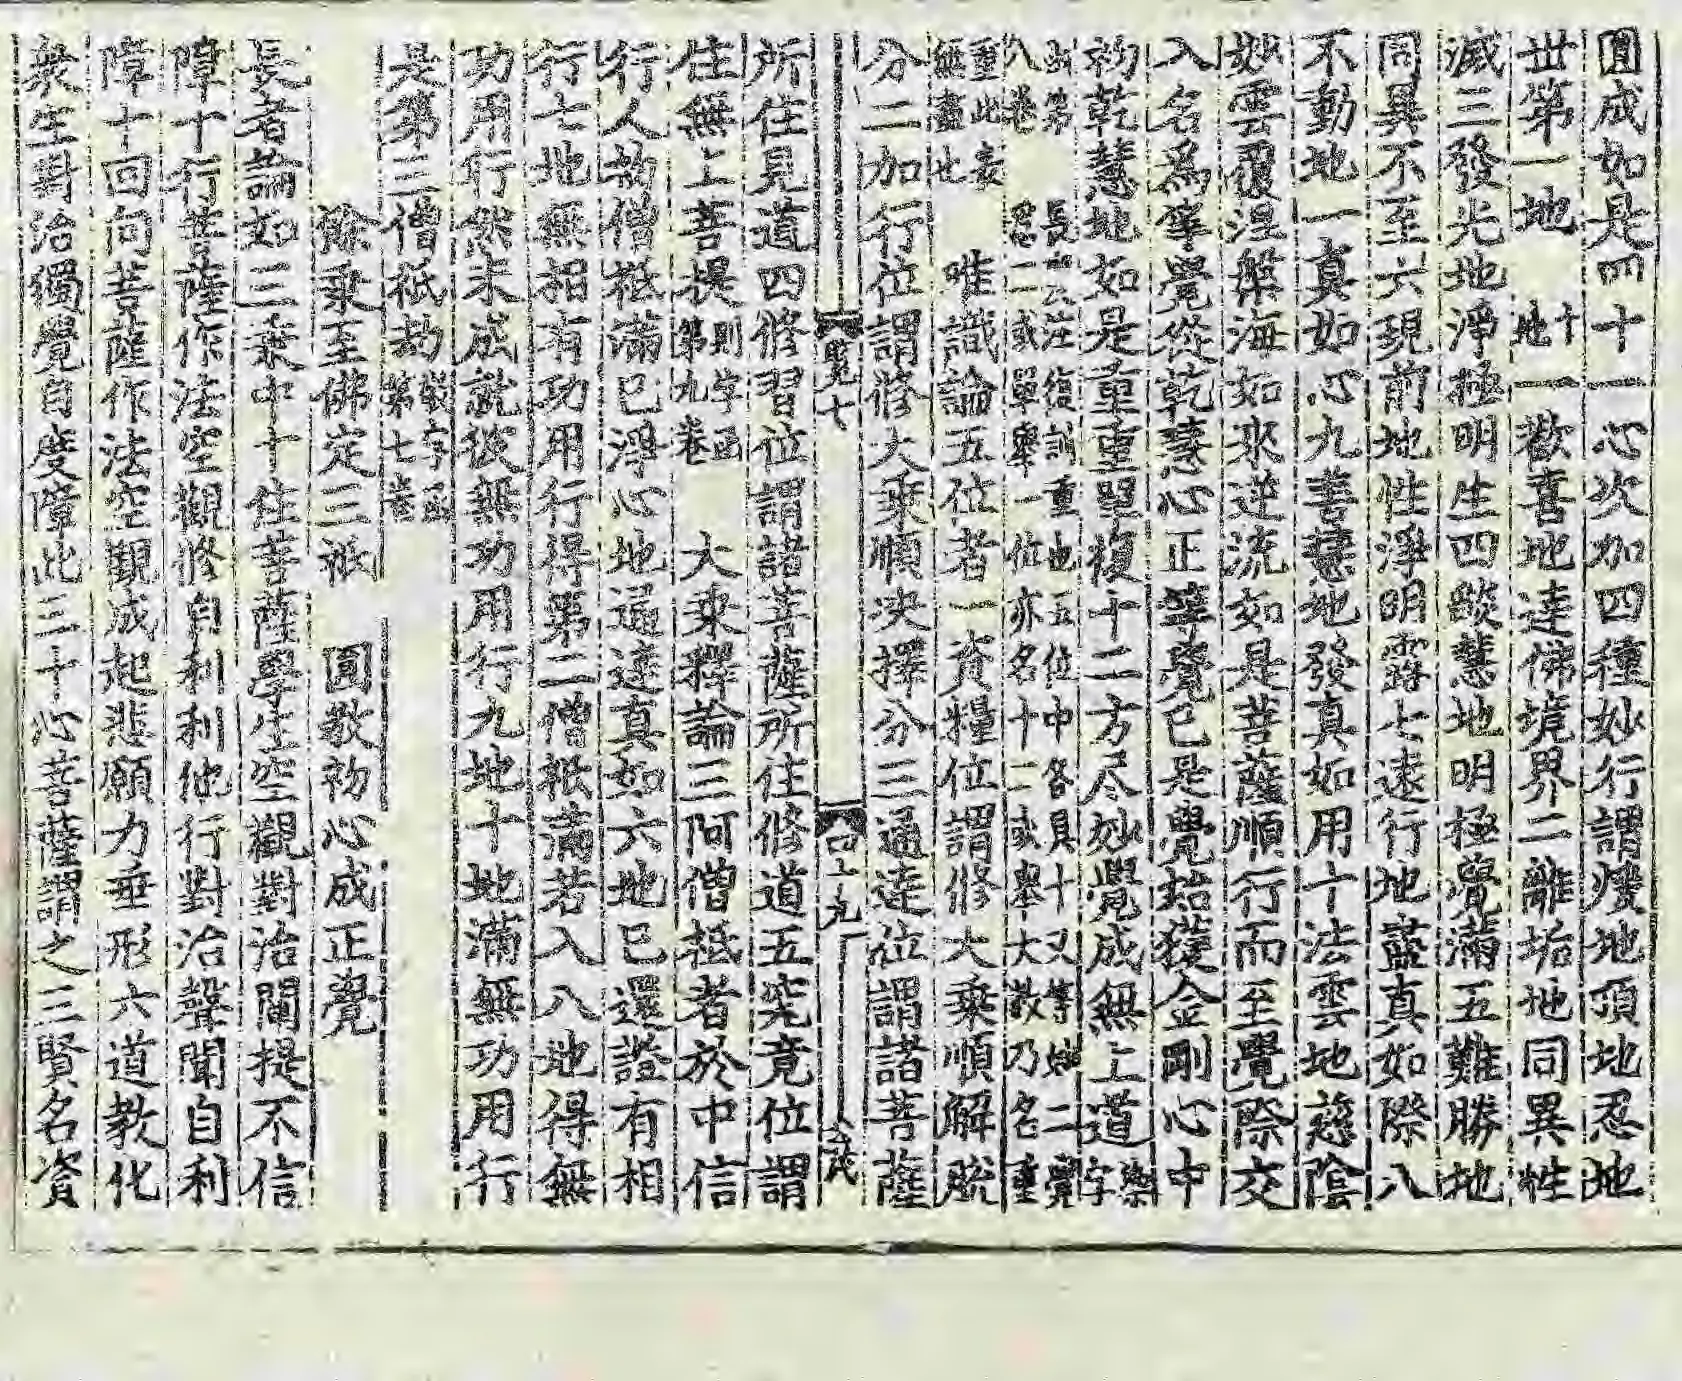 圓成如是四十一心次加四種妙行謂煖地頂地忍地
世第一地十地一歡喜地達佛境界二離垢地同異性
滅三發光地淨極明生四燄慧地明極覺滿五難勝地
同異不至六現前地性淨明露七遠行地盡真如際八
不動地一真如心九善慧地發真如用十法雲地慈陰
妙雲覆涅槃海如來逆流如是菩薩順行而至覺際交
入名爲等覺從乾慧心正等覺已是覺始獲金剛心中
初乾慧地如是重重單複十二方尽妙覺成無上道
此第八卷 長 云 注復訓重也五位中各具十又等妙二覺 名二或單舉一位亦名十二或舉大數乃名重
重此妄無盡也 唯識論五位者一資糧位謂修大乘順解脫
分二加行位謂修大乘順决擇分三通達位謂諸菩薩
覽七
所住見道四修習位謂諸菩薩所住修道五究竟位謂
住無上菩提則字函第九卷 大乘釋論三阿僧祇者於中信
行人劫僧祇滿已淨心地通達真如六地已還證有相
行七地無相有功用行得第二僧祇滿若入八地得無
功用行然未成就彼無功用行九地十地滿無功用行
是第三僧祇劫 字函第七卷
餘乘至佛定三祇 圓教初心成正覺
長者論如三乘中十住菩薩學生空觀對治闡提不信
障十行菩薩作法空觀修自利利他行對治聲聞自利
障十回向菩薩作法空觀成起悲願力垂形六道教化
衆生對治獨覺自度障此三十心菩薩謂之三賢名資